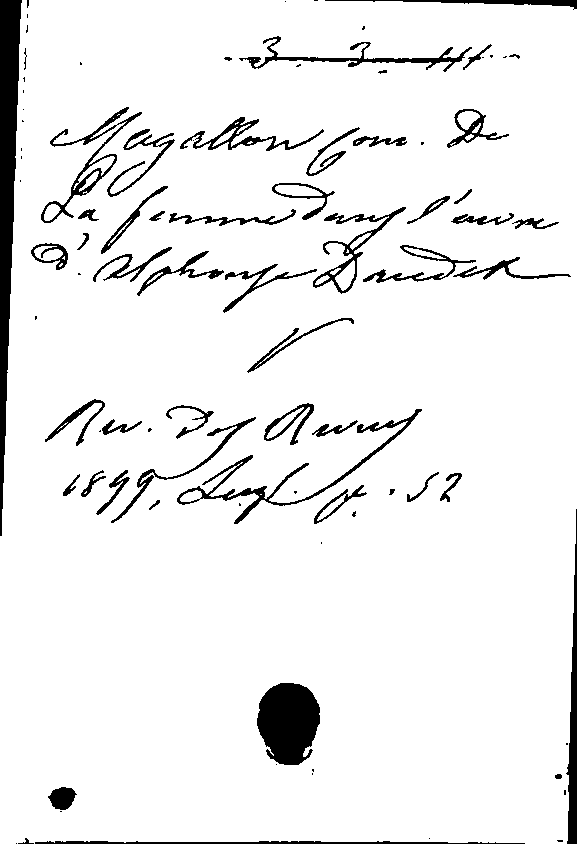 3. 3. III
Magallon Com. De
La femme dans l'œuvre
d'Alphonse Daudet
Rev. Des Revues
1899, p. 52